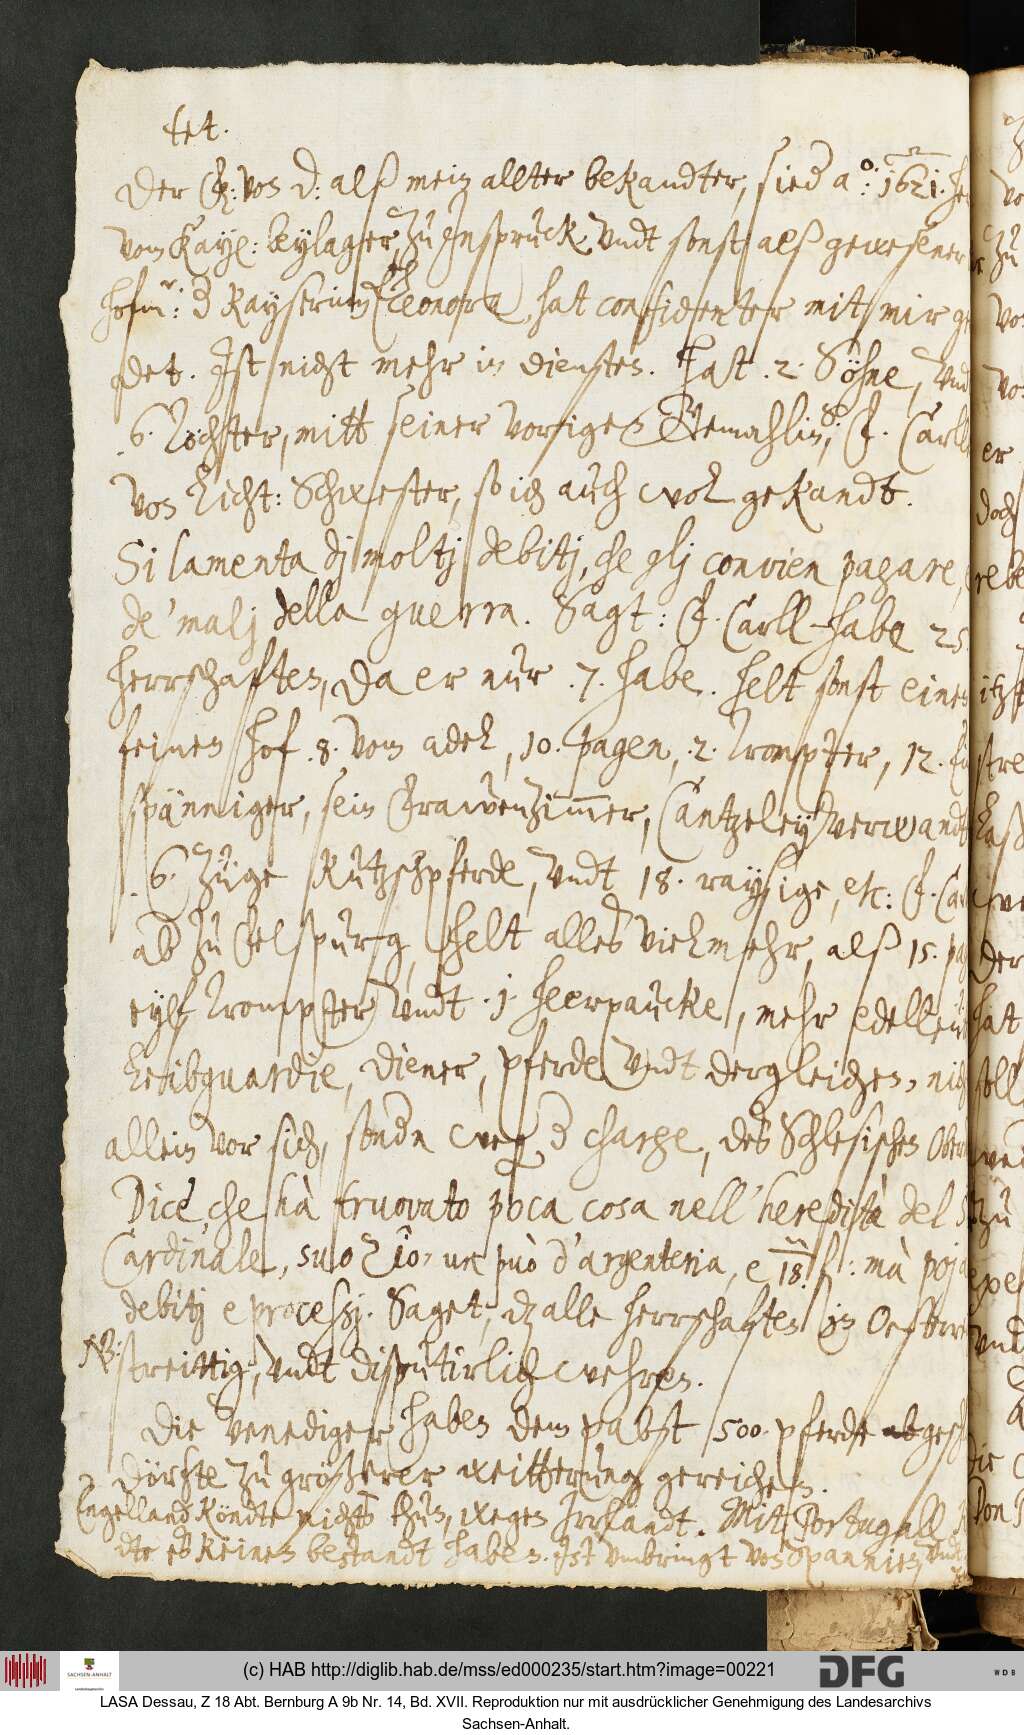 tet.
Der F: von D: alß mein allter bekandter, sied a°: 1621. her
vom Kayß: beylager, zu Insprück, undt sonst alß gewesener
hofm: d Kayserinn Eleonora, hat confidenter mitt mir ge
det. Ist nicht mehr in diensten. Hat .2. Söhne, und
.6. Töchter, mitt seiner vorigen Gemahlin, F. Carll
von Licht: Schwester, so ich auch wol gekandt.
Si lamenta dj moltj debitj, che glj convien pagare,
de' malj della guerra. Sagt: F. Carll habe 25.
herrschafften, da er nur .7. habe. helt sonst einen
feinen hof .8. vom adel, 10. pagen, .2. Trompter, 12. Ein
spänniger, sein Frawenzimmer, Cantzeleyverwandte
.6. Züge Kutzschpferde, undt 18. raysige, etc: F. Carl
ab zu Felspurg, helt alles vielmehr, alß 15. pag
eylf Trompter undt .1. heerpaucke, mehr edelleut
Leibguardie, diener, pferde undt dergleichen, nich
allein vor sich, sondn weg. d charge, des Schlesischen Ober
Dice, che hà truovato poca cosa nell' heredità del S
Cardinale, suo Zio, un può d'argenteria, e 18. f: mà poj
debitj e processj. Saget, dz alle herrschafften in Oesterre
NB: streittig, undt disputirlich wehren.
Die Venediger haben dem pabst 500. pferde abgesch
Dörfte zu größerer weitterung gereichen.
Engelland köndte nichts thun, wegen Irrlandt. Mitt Portugall
dte es keinen bestandt haben. Ist umbringt von Spannien, undt
(c) HAB http://diglib.hab.de/mss/ed000235/start.htm?image=00221
DFG
WDB
SACHSEN-ANHALT
LASA Dessau, Z 18 Abt. Bernburg A 9b Nr. 14, Bd. XVII. Reproduktion nur mit ausdrücklicher Genehmigung des Landesarchivs
Sachsen-Anhalt.